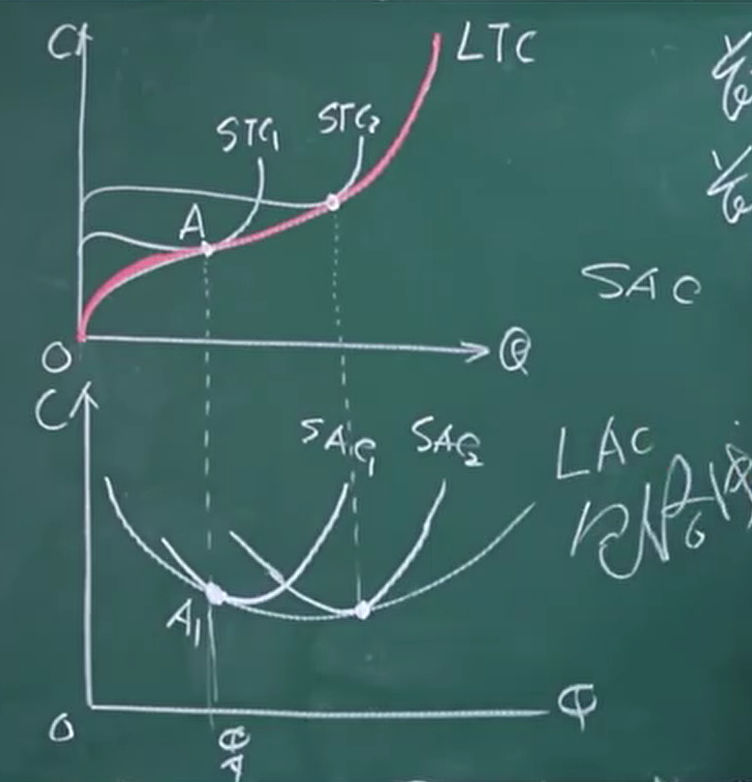 C
LTC
STC₁
STC₂
A
SAC
O
Q
C
SAC₁
SAC₂
LAC
A₁
O
Q
Q